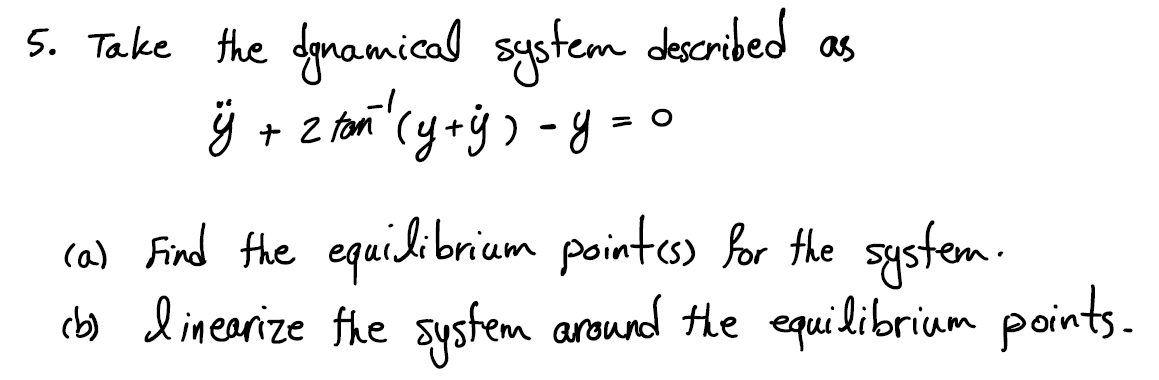 5. Take the dynamical system described as
ÿ + 2 tan⁻¹(y+ẏ) - y = 0
(a) Find the equilibrium point(s) for the system.
(b) linearize the system around the equilibrium points.